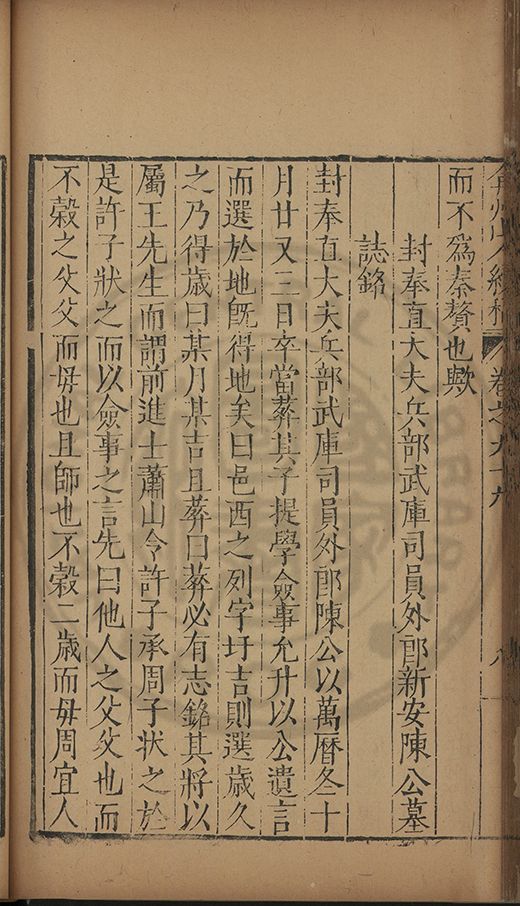 弇州山人續稿 卷之九十九 八
而不爲秦贅也歟
封奉直大夫兵部武庫司員外郎新安陳公墓
誌銘
封奉直大夫兵部武庫司員外郎陳公以萬曆冬十
月廿又三日卒當葬其子提學僉事允升以公遺言
而選於地旣得地矣曰邑西之列字圩吉則選歲久
之乃得歲曰某月某吉且葬曰葬必有志銘其將以
屬王先生而謂前進士蕭山令許子承周子狀之於
是許子狀之而以僉事之言先曰他人之父父也而
不穀之父父而毋也且師也不穀二歲而毋周宜人